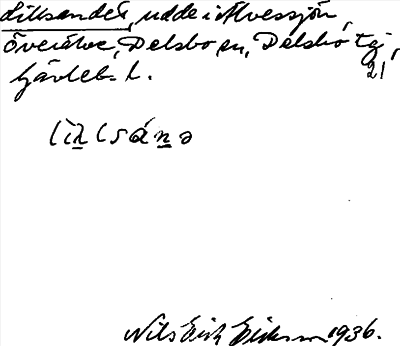 Lillsandet, udde i Alvessjön,
Överälve, Delsbo sn, Delsbo tg,
Gävleb. l. 21
Nils Erik Eriksson 1936.